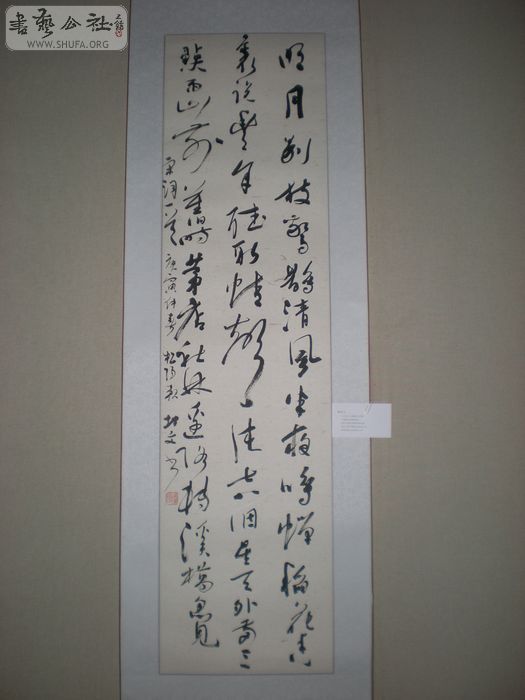 書藝公社
WWW.SHUFA.ORG
明月別枝驚鵲清風半夜鳴蟬稻花香
裏說豐年聽取蛙聲一片七八個星天外兩三
點雨山前舊時茅店社林邊路轉溪橋忽見
宋詞一首庚寅仲春